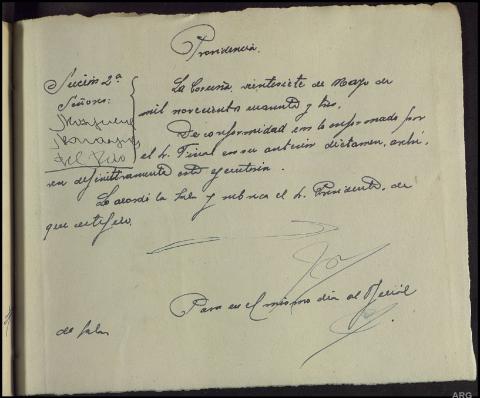 Providencia.
Sección 2ª
Señores:
del Río
La Coruña, veintisiete de Mayo de
mil novecientos cuarenta y tres.
De conformidad con lo informado por
el Sr. Fiscal en su anterior dictamen, archí-
vese definitivamente esta ejecutoria.
Lo acordó la Sala y rubrica el Sr. Presidente, de
que certifico.
Pasa en el mismo día al Oficial
de Sala
ARG